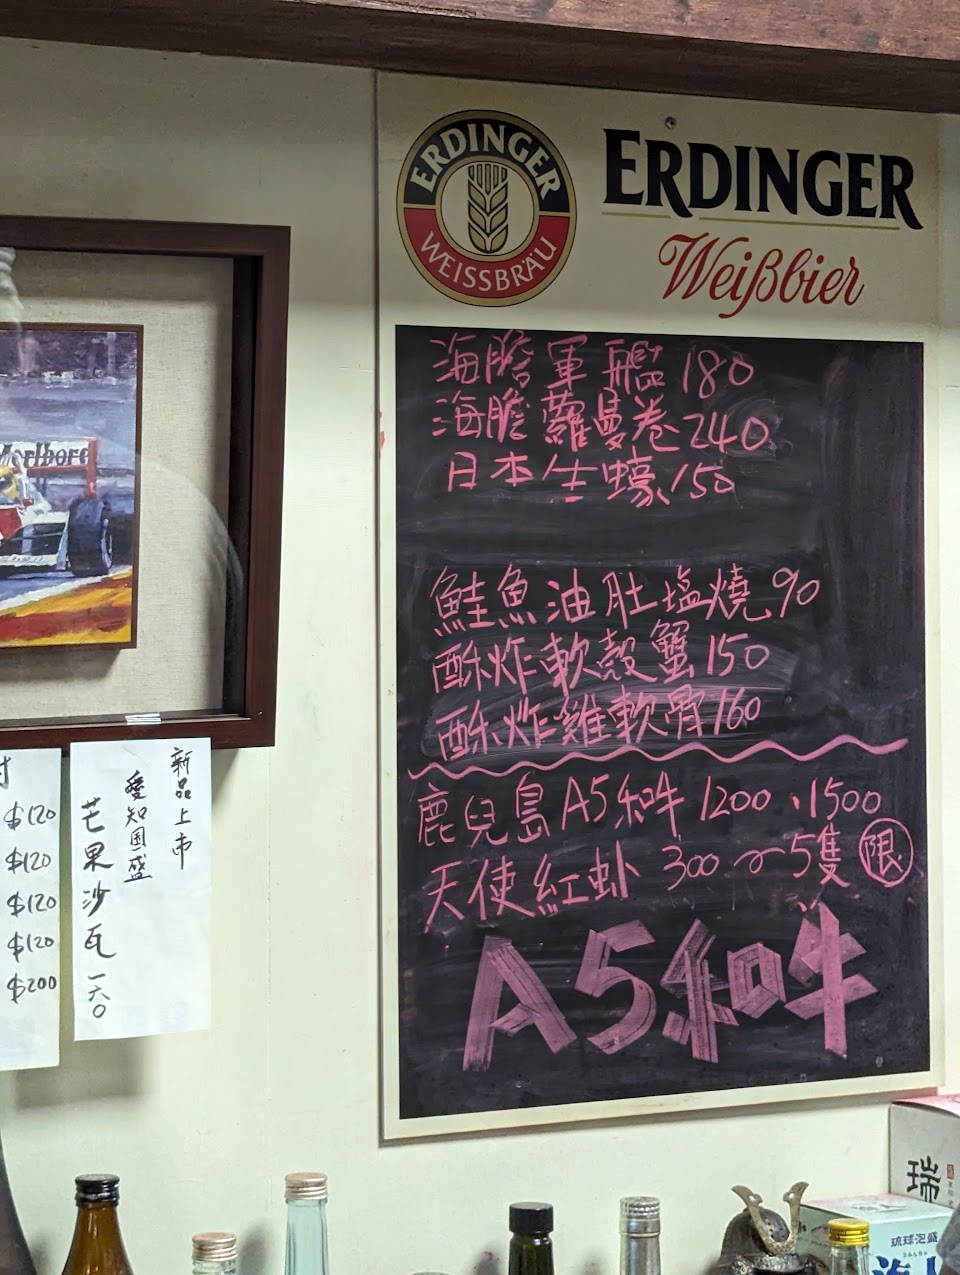 ERDINGER
WEISSBRÄU
ERDINGER
Weißbier
海膽軍艦 180
海膽蘿蔓卷 240
日本生蠔 150
鮭魚油肚塩燒 90
酥炸軟殼蟹 150
酥炸雞軟骨 160
鹿兒島A5和牛 1200、1500
天使紅虾 300~5隻 限
A5和牛
Marlboro
$120
$120
$120
$120
$200
新品上市
愛知国盛
芒果沙瓦 一六〇
瑞
琉球泡盛